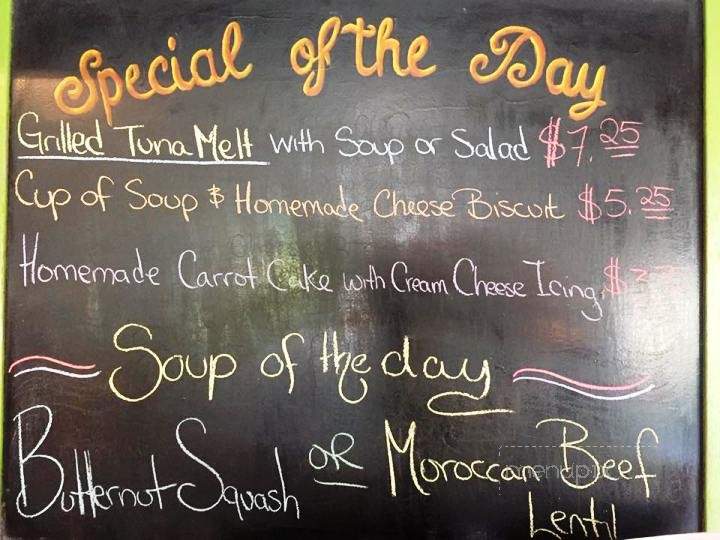 Special of the Day
Grilled Tuna Melt with Soup or Salad $7.25
Cup of Soup & Homemade Cheese Biscuit $5.25
Homemade Carrot Cake with Cream Cheese Icing $3
Soup of the day
Butternut Squash OR Moroccan Beef
Lentil